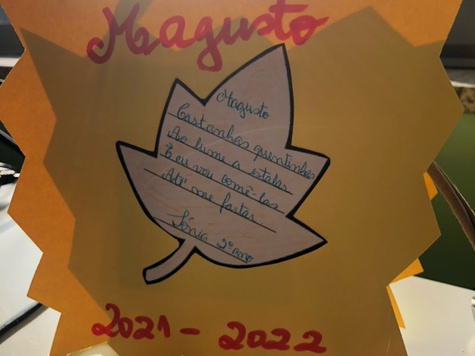 Magusto
Magusto
Castanhas quentinhas
Ao lume a estalar
E eu vou comê-las
Até me fartar
Sónia 2º ano
2021 - 2022